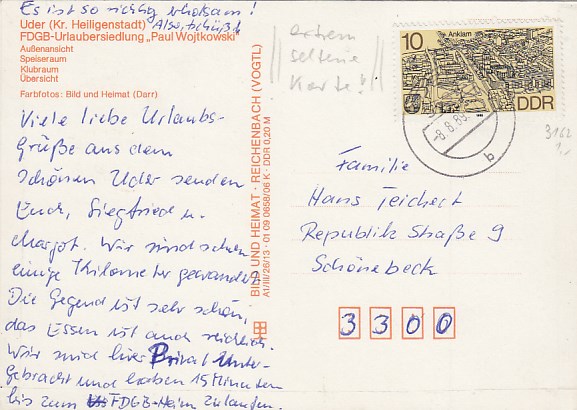 Es ist so richtig erholsam!
Also, tschüß
Uder (Kr. Heiligenstadt)
FDGB-Urlaubersiedlung „Paul Wojtkowski"
Außenansicht
Speiseraum
Klubraum
Übersicht
Farbfotos: Bild und Heimat (Darr)
Viele liebe Urlaubs-
Grüße aus dem
schönen Uder senden
Euch, Siegfried u.
Margot. Wir sind schon
einige Kilometer gewandert
Die Gegend ist sehr schön,
das Essen ist auch reichlich.
Wir sind hier Privat Unter-
gebracht und haben 15 Minuten
bis zum FDGB-Heim zu laufen.
BILD UND HEIMAT · REICHENBACH (VOGTL)
A1/III/26/13 · 01 09 0658/06 K · DDR 0,20 M
extrem
seltene
Karte!
10
Anklam
DDR
-8.8.88
b
3162
Familie
Hans Teichert
Republik Straße 9
Schönebeck
3300